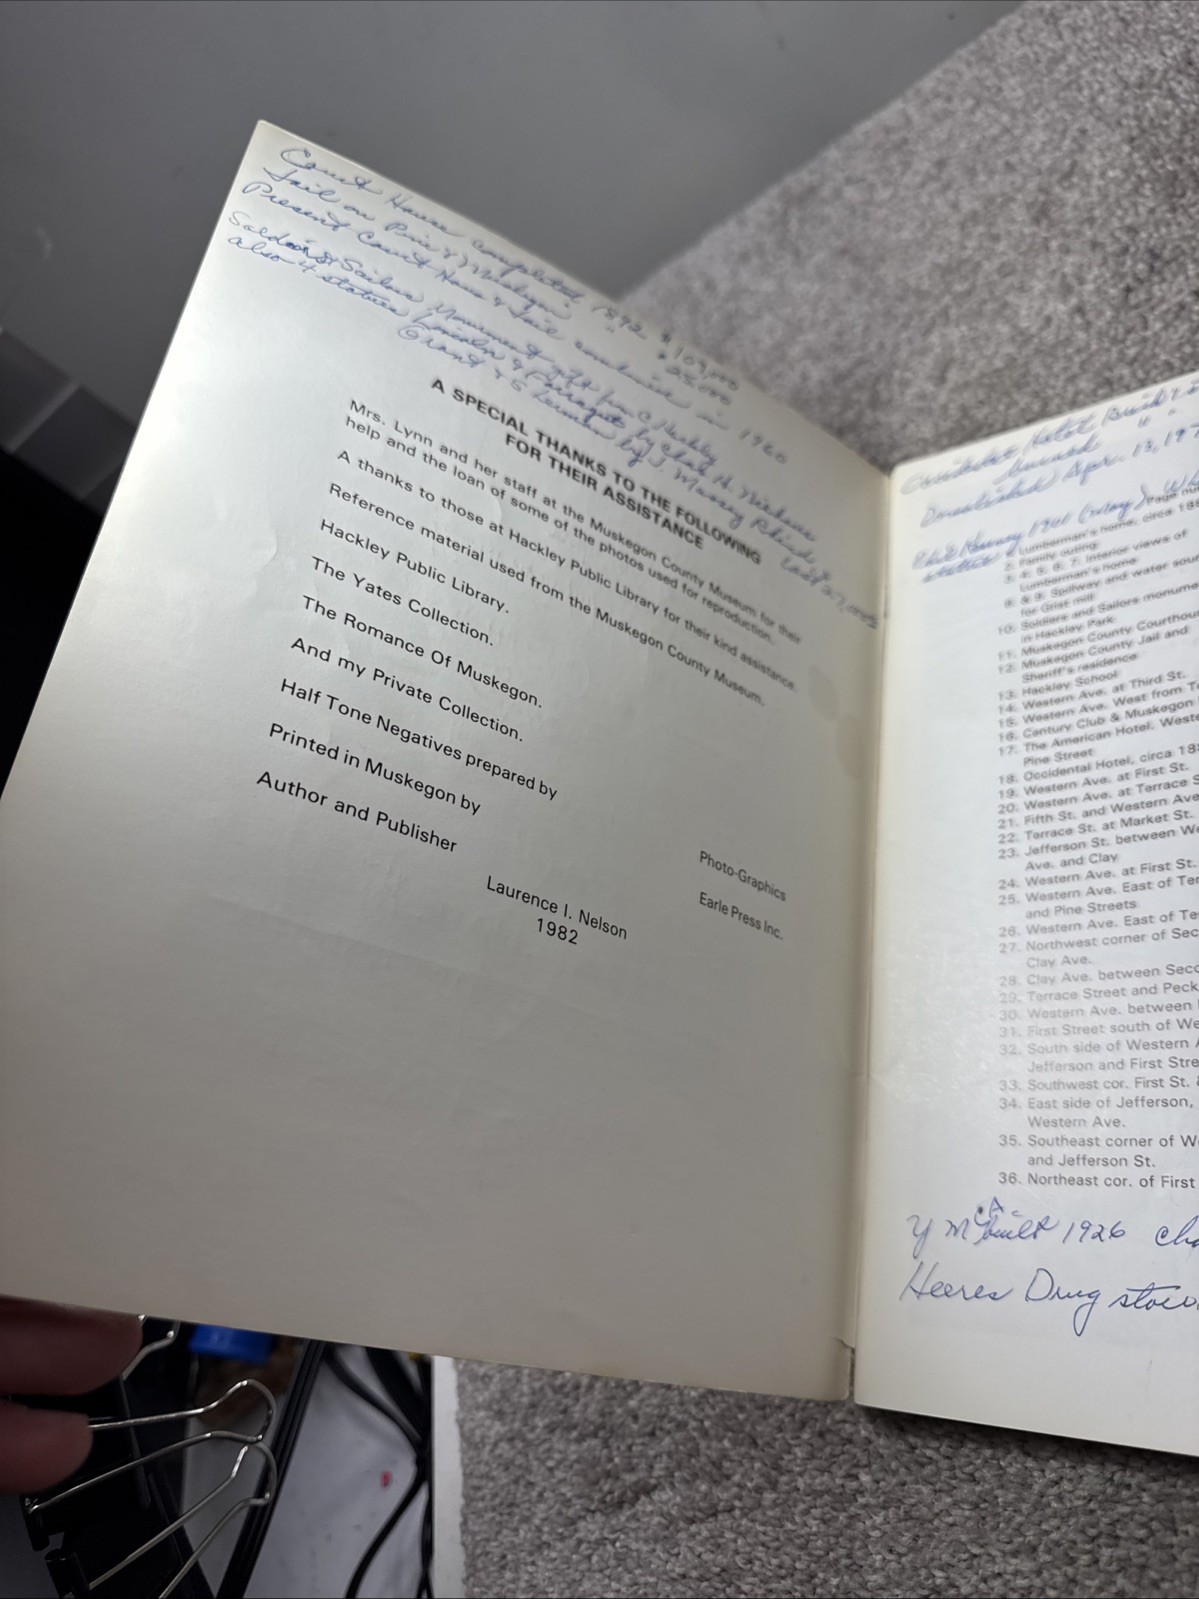 Court House completed 1892 $109,000
Jail on Pine & Muskegon " $25,000
Present Court House & Jail combine in 1960
Sailors Monument gift from C Hackley
also 4 statues Lincoln & Farragut by Clay H. Niehaus
Grant & Sherman by J. Massey Rhinds
A SPECIAL THANKS TO THE FOLLOWING
FOR THEIR ASSISTANCE
Mrs. Lynn and her staff at the Muskegon County Museum for their
help and the loan of some of the photos used for reproduction.
A thanks to those at Hackley Public Library for their kind assistance.
Reference material used from the Muskegon County Museum.
Hackley Public Library.
The Yates Collection.
The Romance Of Muskegon.
And my Private Collection.
Half Tone Negatives prepared by
Photo-Graphics
Printed in Muskegon by
Earle Press Inc.
Author and Publisher
Laurence I. Nelson
1982
Hotel
burned "
Apr. 13, 197
Page nu
Lumberman's home, circa 188
2. Family outing
3. 4. 5. 6. 7. Interior views of
Lumberman's home
8. & 9. Spillway and water sou
for Grist mill
10. Soldiers and Sailors monume
in Hackley Park
11. Muskegon County Courthou
12. Muskegon County Jail and
Sheriff's residence
13. Hackley School
14. Western Ave. at Third St.
15. Western Ave. West from T
16. Century Club & Muskegon
17. The American Hotel, Weste
Pine Street
18. Occidental Hotel, circa 18
19. Western Ave. at First St.
20. Western Ave. at Terrace S
21. Fifth St. and Western Ave
22. Terrace St. at Market St.
23. Jefferson St. between We
Ave. and Clay
24. Western Ave. at First St.
25. Western Ave. East of Ter
and Pine Streets
26. Western Ave. East of Te
27. Northwest corner of Sec
Clay Ave.
28. Clay Ave. between Seco
29. Terrace Street and Peck
30. Western Ave. between
31. First Street south of We
32. South side of Western A
Jefferson and First Stre
33. Southwest cor. First St. &
34. East side of Jefferson,
Western Ave.
35. Southeast corner of W
and Jefferson St.
36. Northeast cor. of First
Y M C A built 1926
Heeres Drug store